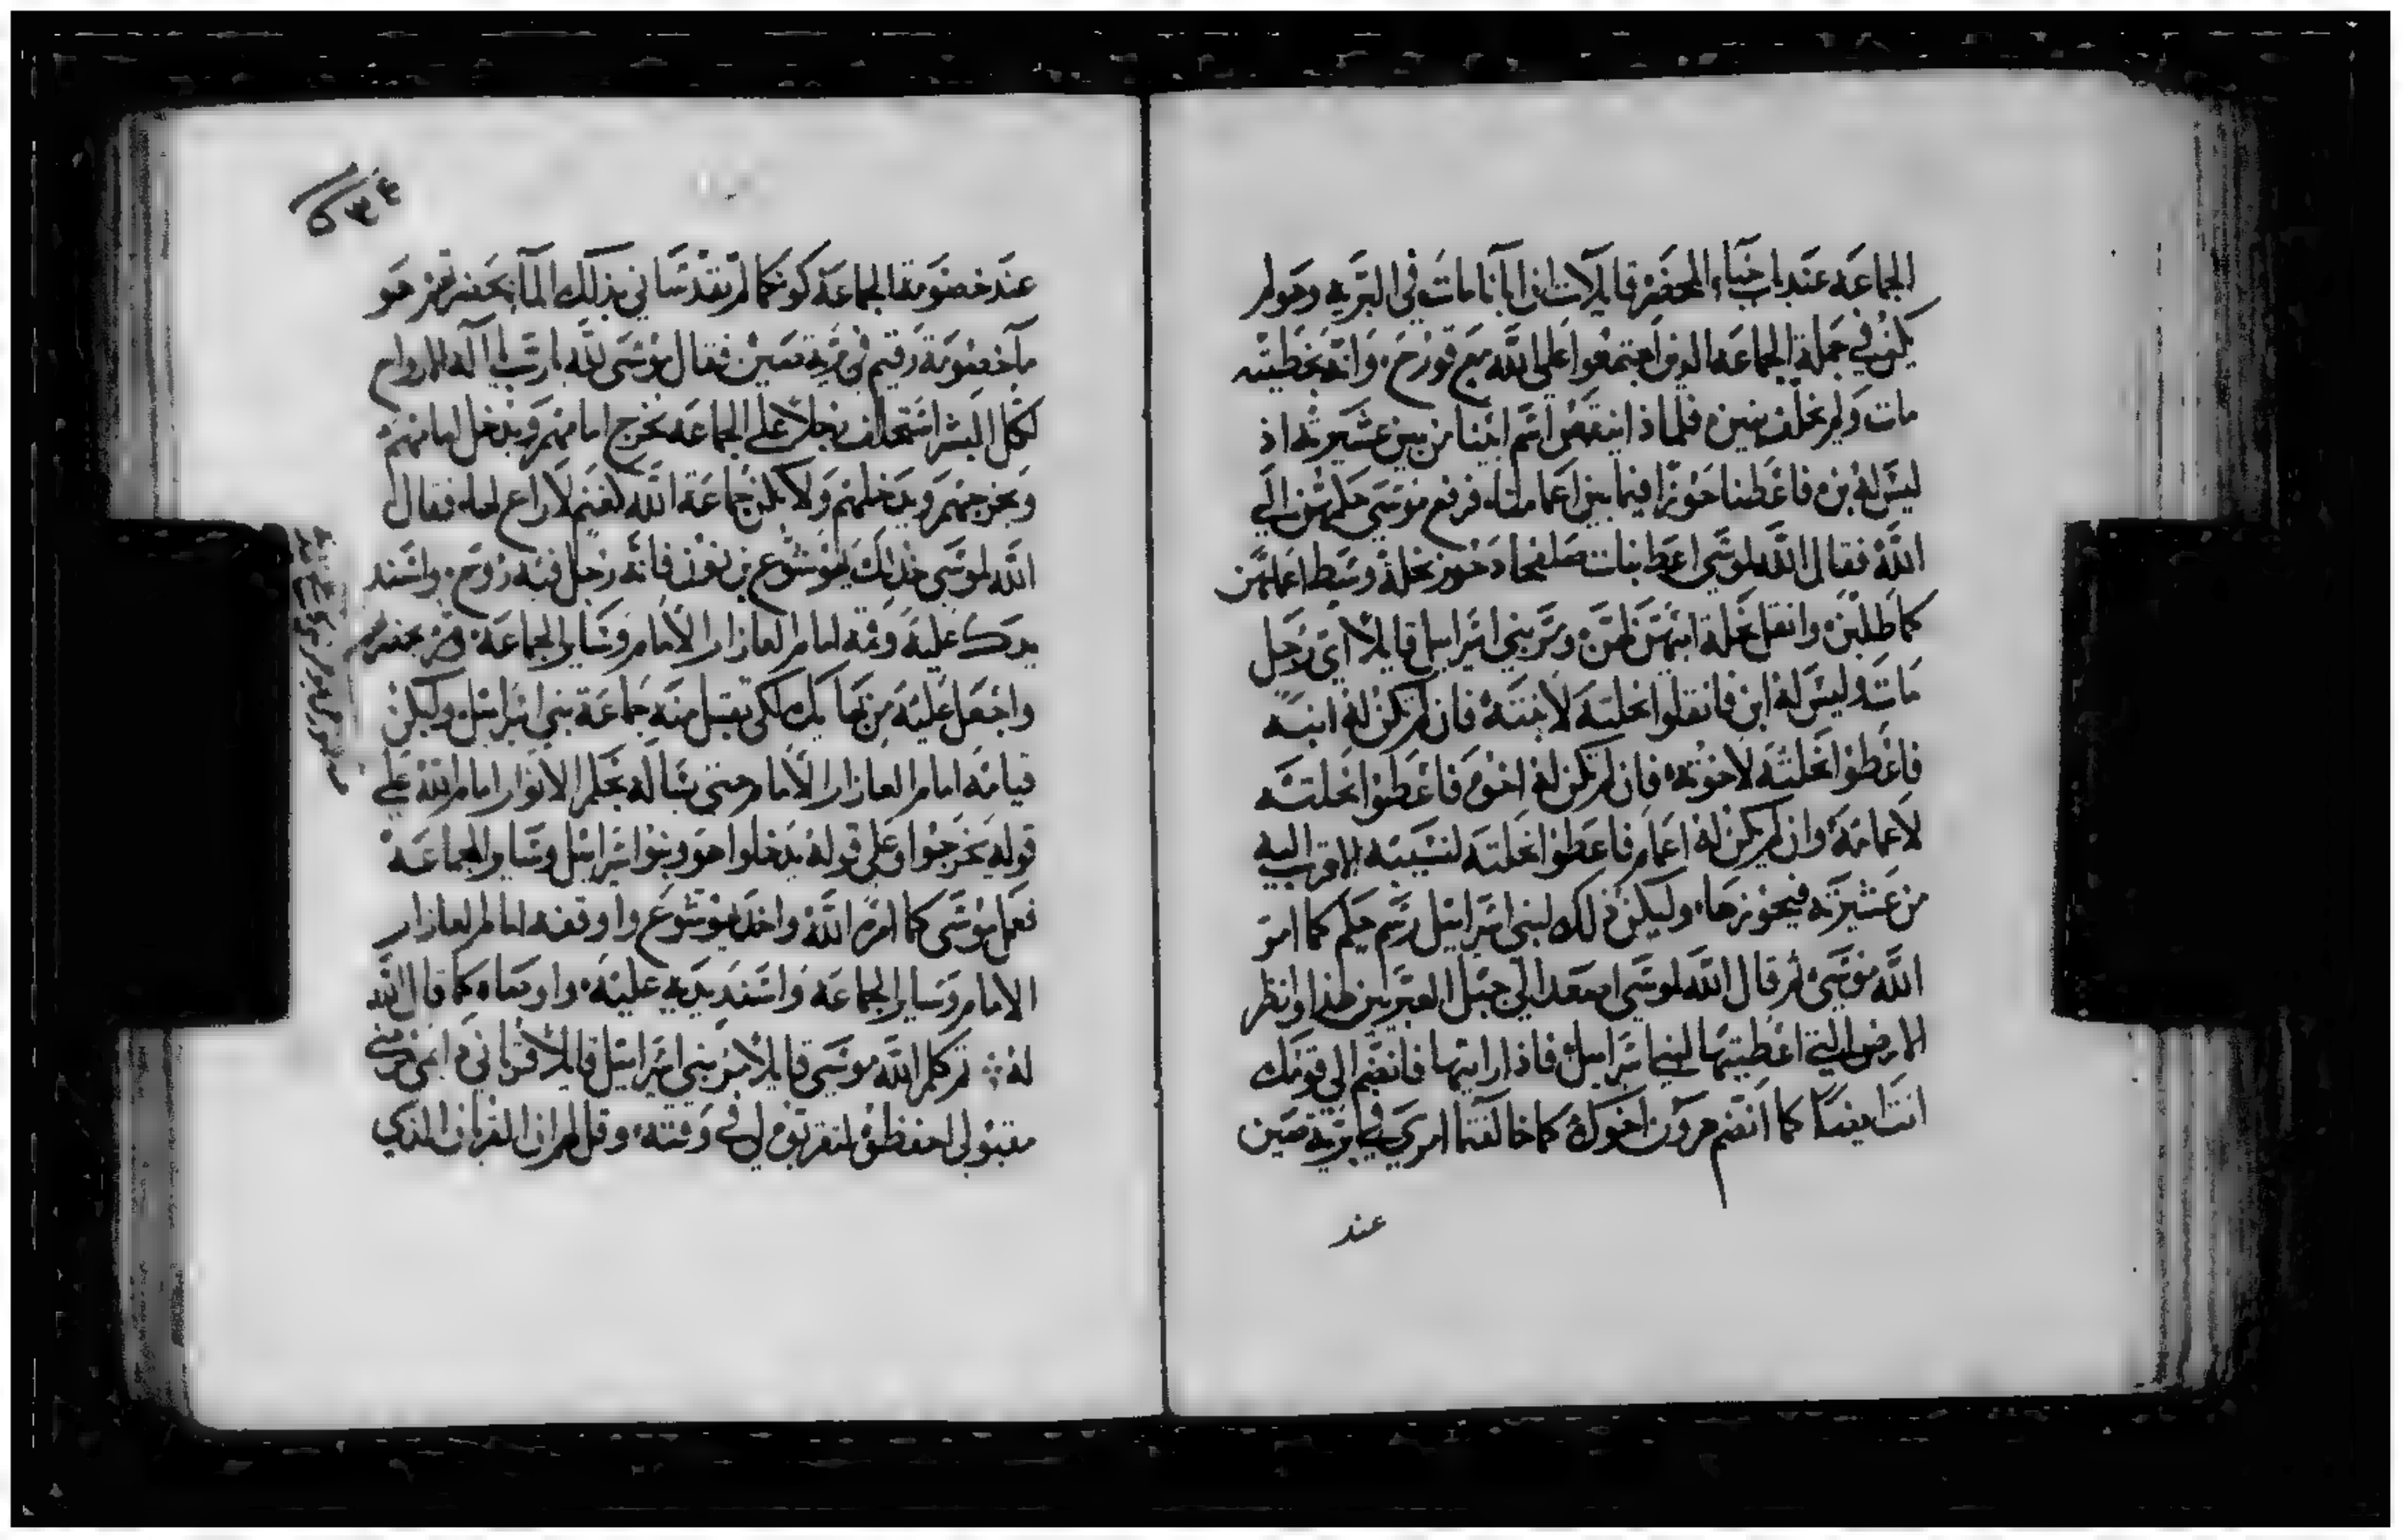 الجماعه عند باب خباء المحضر قايلات ان ابانا مات في البريه وهو لم
يكن في جملة الجماعه الذين اجتمعوا على الله مع قورح، وانه بخطيته
مات ولم يخلف بنين، فلماذا ينتقص اسم ابينا من بين عشيرته اذ
ليس له ابن، فاعطنا حوزا فيما بين اعمامنا، فرفع موسى حكمهن الي
الله فقال الله لموسى اعط بنات صلفحاد حوز نحلة وسط اعمامهن
كما طلبن، وانقل نحلة ابيهن لهن، ومر بني اسراييل قايلا اي رجل
مات وليس له ابن فانقلوا نحلته لابنته، فان لم تكن له ابنه
فاعطوا نحلته لاخوته، فان لم تكن له اخوه فاعطوا نحلته
لاعمامه، وان لم يكن له اعمام فاعطوا نحلته لنسيبه الاقرب اليه
من عشيرته فيحوزها، وليكن ذلك لبني اسراييل رسم حكم كما امر
الله موسى، ثم قال الله لموسى اصعد الي جبل العبرانيين هذا وانظر
الارض التي اعطيتها لبني اسراييل، فاذا رايتها فانضم الي قومك
انت ايضا كما انضم هرون اخوك، كما خالفتما امري في برية صين
عند
٥٣٤
عند خصومة الجماعة كونكما لم تقدساني بذلك الما بحضرتهم هو
ما خصومة رقيم في برية صين، فقال موسى لله يا رب يا اله الارواح
لكل البشر استخلف رجلا على الجماعه يخرج امامهم ويدخل امامهم
ويخرجهم ويدخلهم ولا تكن جماعة الله كغنم لا راع لها، فقال
الله لموسى خذ لك يوشوع بن نون فانه رجل فيه روح، واسند
يدك عليه وقفه امام العازار الامام وساير الجماعة، ومره بحضرتهم
واجعل عليه من بهايك لكي تقبل منه جماعة بني اسراييل، وليكن
قيامه امام العازار الامام حتى يسال له بحكم الانوار امام الله على
قوله يخرجوا وعلى قوله يدخلوا هو وبنوا اسراييل وساير الجماعة
فعل موسى كما امره الله واخذ يوشوع واوقفه امام العازار
الامام وساير الجماعه واسند يديه عليه، واوصاه كما قال الله
له ثم كلم الله موسى قايلا مر بني اسراييل قايلا قرباني
مقبولي احفظوه لتقربوه لي في وقته، وقل لهم ان القربان الذي